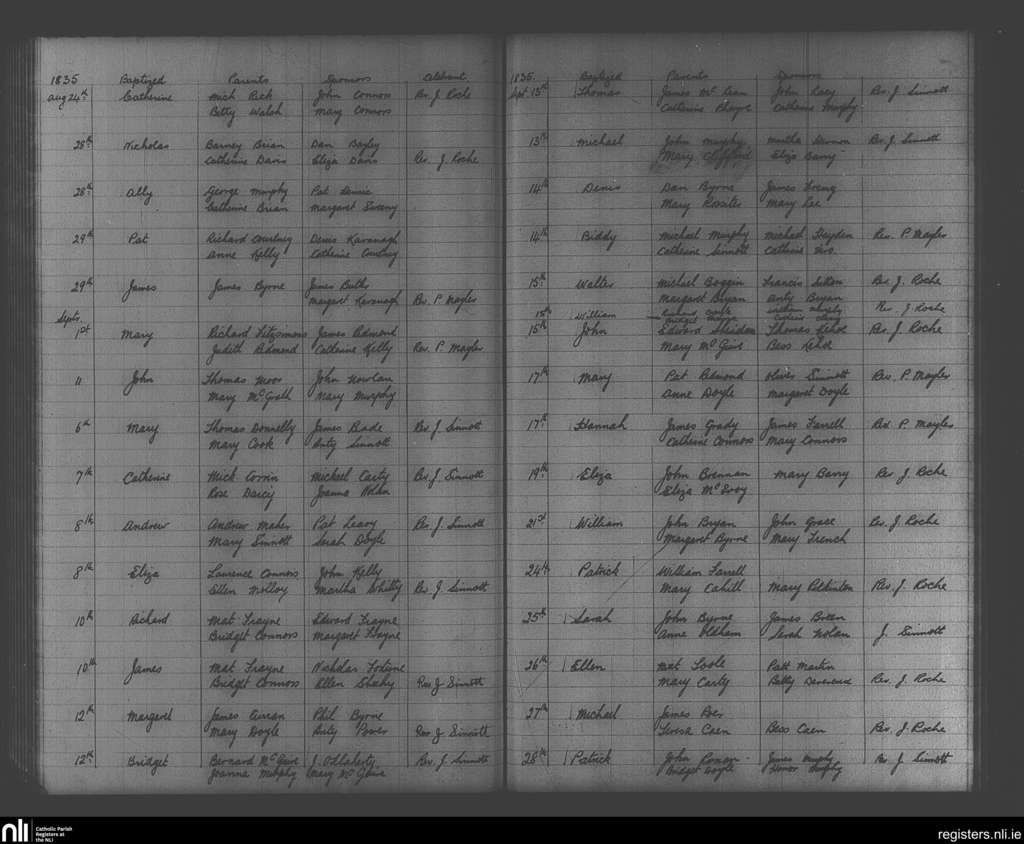 1835 Baptized Parents Sponsors Celebrant
Aug 24th Catherine Mich Rick John Connors Rev. J Roche
Betty Walsh Mary Connors
28th Nicholas Barney Brian Dan Bagley
Catherine Davis Eliza Davis Rev. J Roche
28th Ally George Murphy Pat
Catherine Brian Margaret Sweeny
29th Pat Richard Courtney Denis Kavanagh
Anne Kelly Catherine Courtney
29th James James Byrne James Butler
Margaret Kavanagh Rev. P. Mayler
Septr.
1st Mary Richard Fitzsimons James Redmond
Judith Redmond Catherine Kelly Rev. P. Mayler
11 John Thomas Moor John Nowlan
Mary McGrath Mary Murphy
6th Mary Thomas Donnelly James Reade Rev J. Sinnott
Mary Cook Anty Sinnott
7th Catherine Mick Corrin Michael Carty Rev. J Sinnott
Rose Darcy Joanna Nolan
8th Andrew Andrew Maher Pat Leary Rev. J. Sinnott
Mary Sinnott Sarah Doyle
8th Eliza Laurence Connors John Kelly
Ellen Molloy Martha Whitty Rev. J Sinnott
10th Richard Mat Frayne Edward Frayne
Bridget Connors Margaret Frayne
10th James Mat Frayne Nicholas Fortune
Bridget Connors Ellen Sheehy Rev J Sinnott
12th Margaret James Curran Phil Byrne
Mary Doyle Anty Power Rev J Sinnott
12th Bridget Bernard McGuire J. O'Flaherty Rev. J Sinnott
Joanna Murphy Mary McGuire
1835 Baptized Parents Sponsors
Sept. 13th Thomas James McLean John Lacy Rev. J Sinnott
Catherine Catherine Murphy
13th Michael John Murphy Martha Rev. J Sinnott
Mary Clifford Eliza Barry
14th Denis Dan Byrne James
Mary Rossiter Mary Lee
14th Biddy Michael Murphy Michael Hayden Rev. P Mayler
Catherine Sinnott Catherine
15th Walter Michael Boggin Francis Sutton Rev. J. Roche
Margaret Bryan Anty Bryan
15th William Richard Doyle William Murphy Rev. J Roche
Bridget
15th John Edward Sheridan Thomas Kehoe Rev. J Roche
Mary McGuire Bess Kehoe
17th Mary Pat Redmond Oliver Sinnott Rev. P. Mayler
Anne Doyle Margaret Doyle
17th Hannah James Grady James Farrell Rev P. Mayler
Catherine Connors Mary Connors
19th Eliza John Brennan Mary Barry Rev J. Roche
Eliza McEvoy
21st William John Bryan John Grace Rev. J Roche
Margaret Byrne Mary French
24th Patrick William Farrell
Mary Cahill Mary Rev. J Roche
25th Sarah John Byrne James Breen
Anne Oldham Sarah Nolan J. Sinnott
26th Ellen Mat Toole Patt Martin
Mary Carty Betty Devereux Rev. J. Roche
27th Michael James Roer
Teresa Caen Bess Caen Rev. J Roche
28th Patrick John Ronan James Murphy Rev J Sinnott
Bridget Doyle Honor Murphy
nli
Catholic Parish
Registers at
the NLI
registers.nli.ie